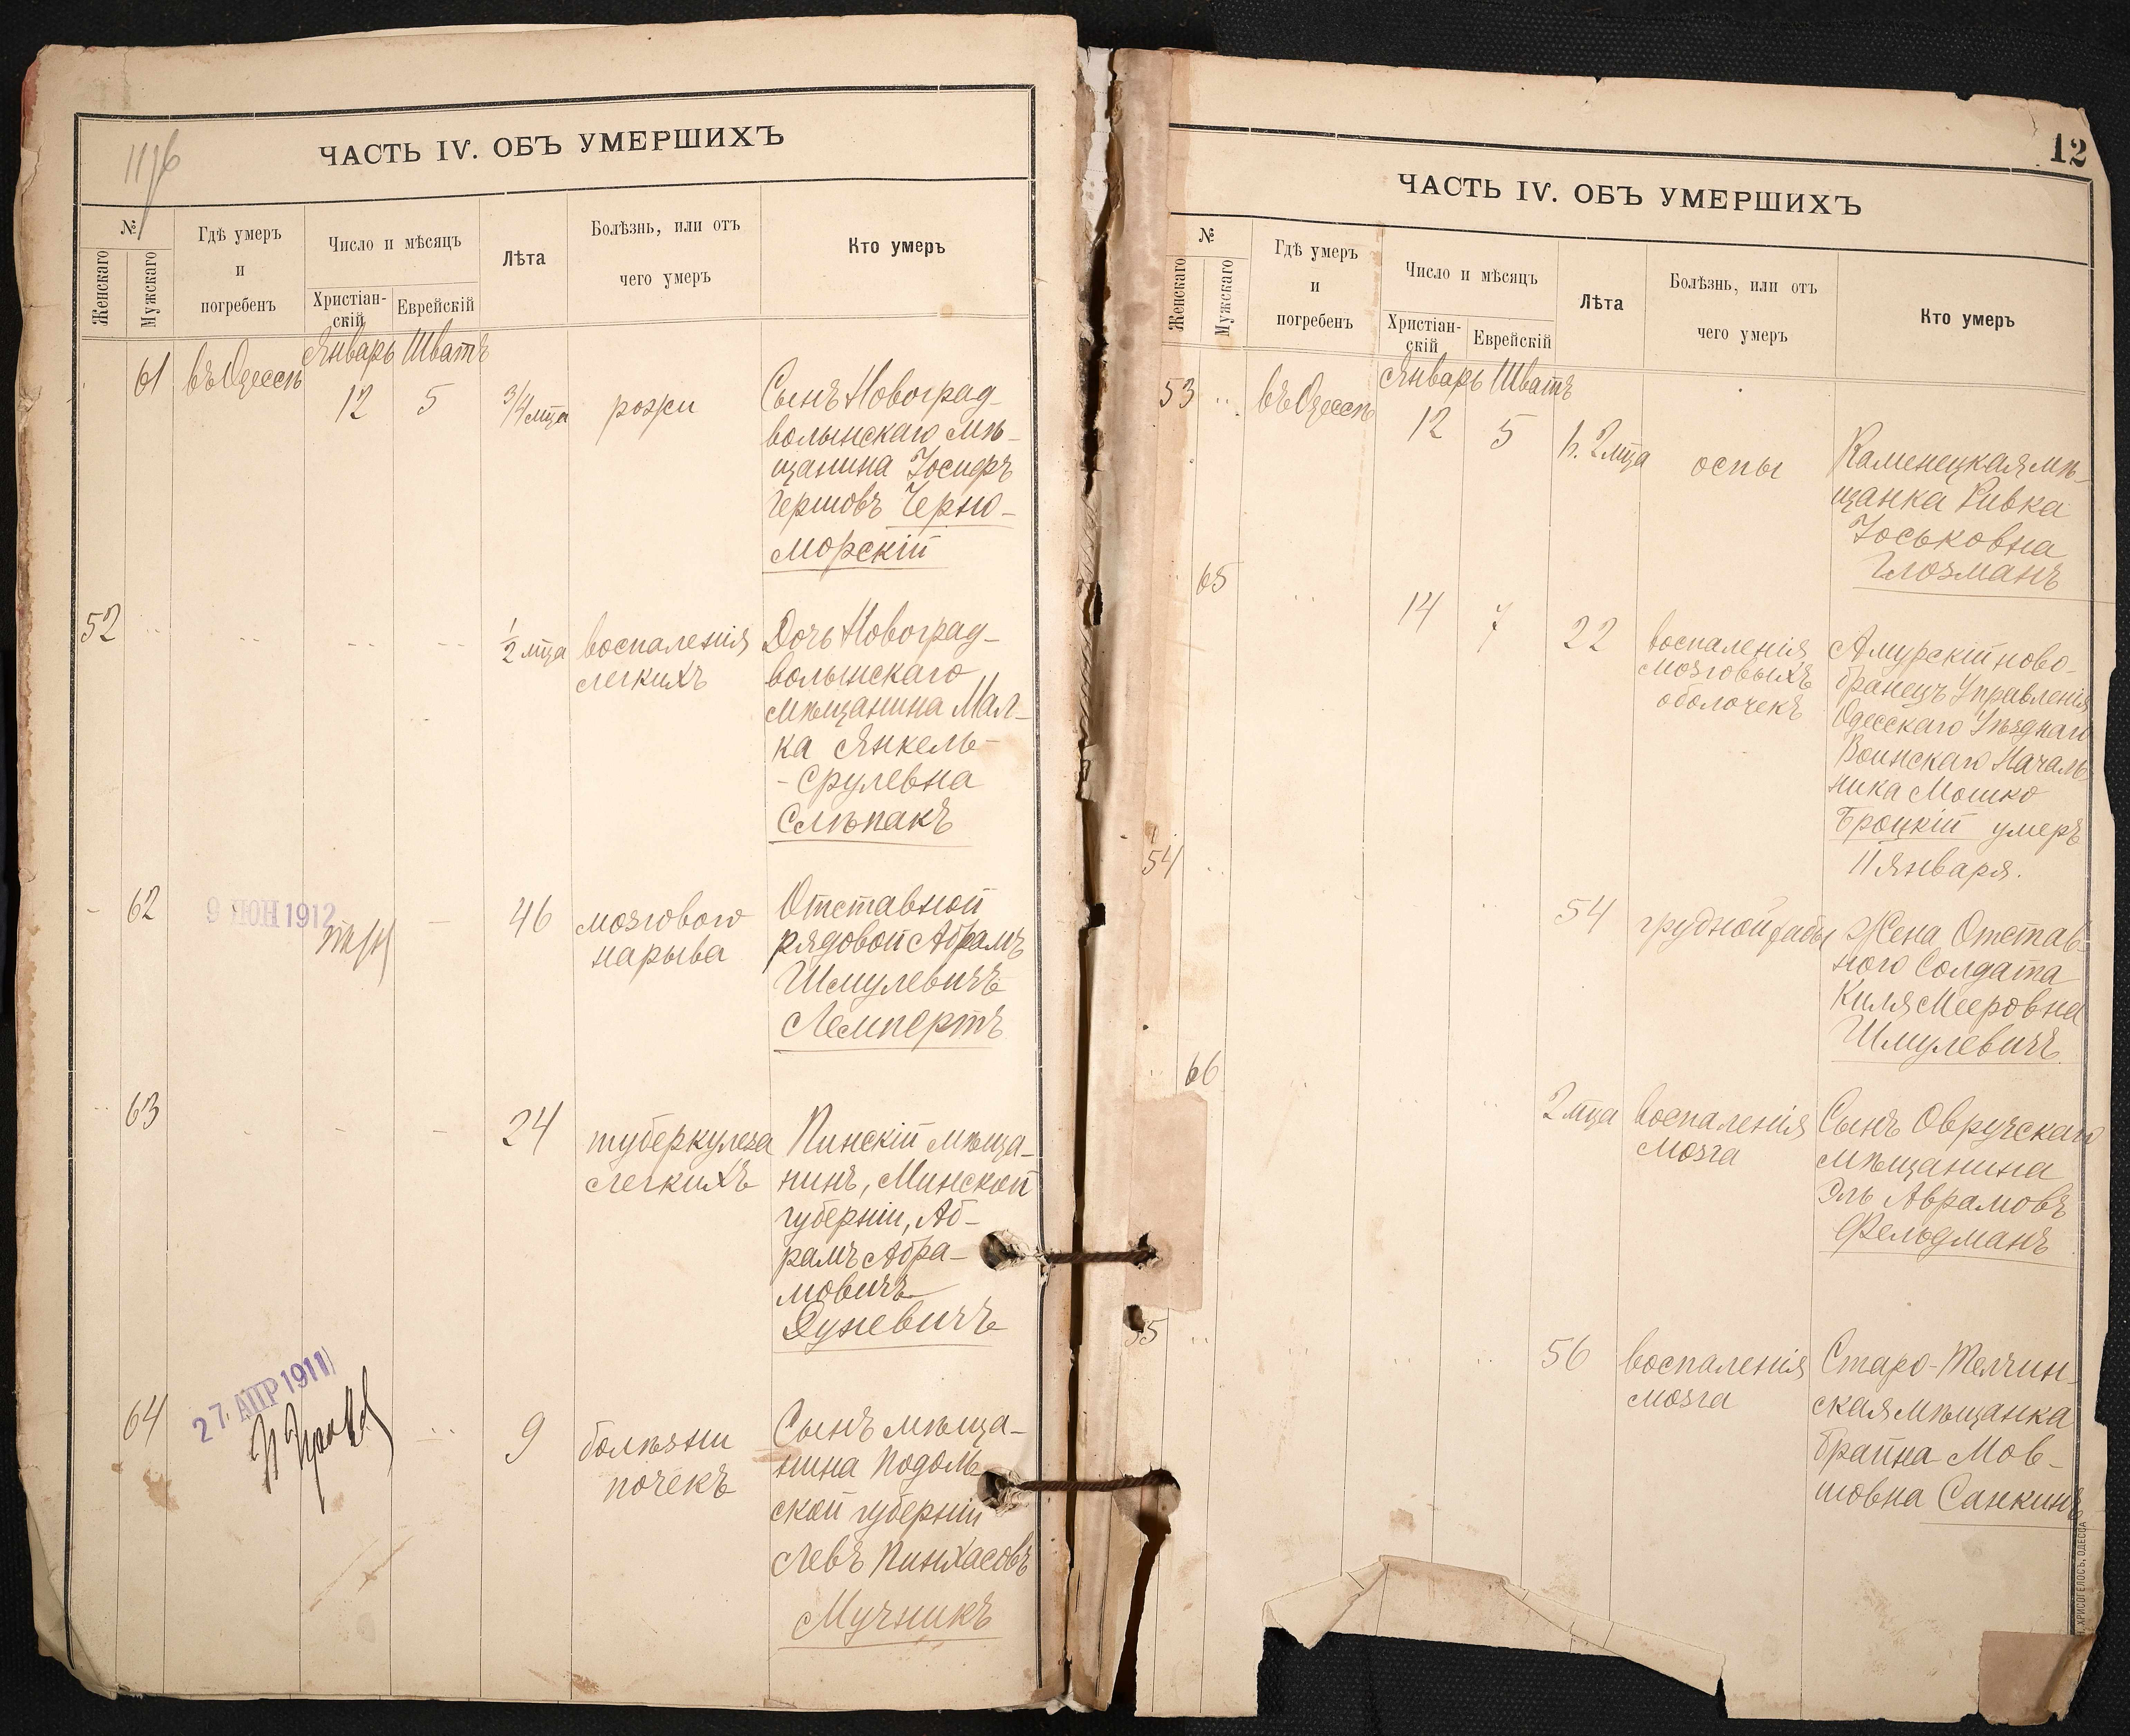 1196
ЧАСТЬ IV. ОБЪ УМЕРШИХЪ
№
Женскаго
Мужскаго
Гдѣ умеръ
и
погребенъ
Число и мѣсяцъ
Христіан-
скій
Еврейскій
Лѣта
Болѣзнь, или отъ
чего умеръ
Кто умеръ
Январь Шватъ
61 въ Одессѣ 12 5 3/4 мца рожи
Сынъ Новоград-
волынскаго мѣ-
щанина Іосифъ
Гершовъ Черно-
морскій
52 1/2 мца воспаленія
легкихъ
Дочь Новоград-
волынскаго
мѣщанина Мал-
ка Янкель-
-Срулевна
Слѣпакъ
62 46 мозгового
нарыва
9 ІЮН 1912
Отставной
рядовой Абрамъ
Шмулевичъ
Лемпертъ
63 24 туберкулеза
легкихъ
Пинскій мѣща-
нинъ, Минской
губерніи, Аб-
рамъ Абра-
мовичъ
Духевичъ
27 АПР 1911
64 9 болѣзни
почекъ
Сынъ мѣща-
нина Подоль-
ской губерніи
Левъ Пинхасовъ
Мучникъ
12
ЧАСТЬ IV. ОБЪ УМЕРШИХЪ
№
Женскаго
Мужскаго
Гдѣ умеръ
и
погребенъ
Число и мѣсяцъ
Христіан-
скій
Еврейскій
Лѣта
Болѣзнь, или отъ
чего умеръ
Кто умеръ
Январь Шватъ
53 въ Одессѣ 12 5 2 мца оспы
Каменецкая мѣ-
щанка Ривка
Іоськовна
Глозманъ
65 14 7 22 воспаленія
мозговыхъ
оболочекъ
Амурскій ново-
бранецъ Управленія
Одесскаго Уѣзднаго
Воинскаго Началь-
ника Мошко
Броцкій умеръ
11 Января.
54 54 грудной жабы
Жена Отстав-
ного Солдата
Киля Мееровна
Шмулевичъ
66 2 мца воспаленія
мозга
Сынъ Овручскаго
мѣщанина
Эль Аврамовъ
Фельдманъ
55 56 воспаленія
мозга
Старо-
ская мѣщанка
Брайна Мов-
шовна Санкинъ
ХРИСОГЕЛОСЪ, ОДЕССА